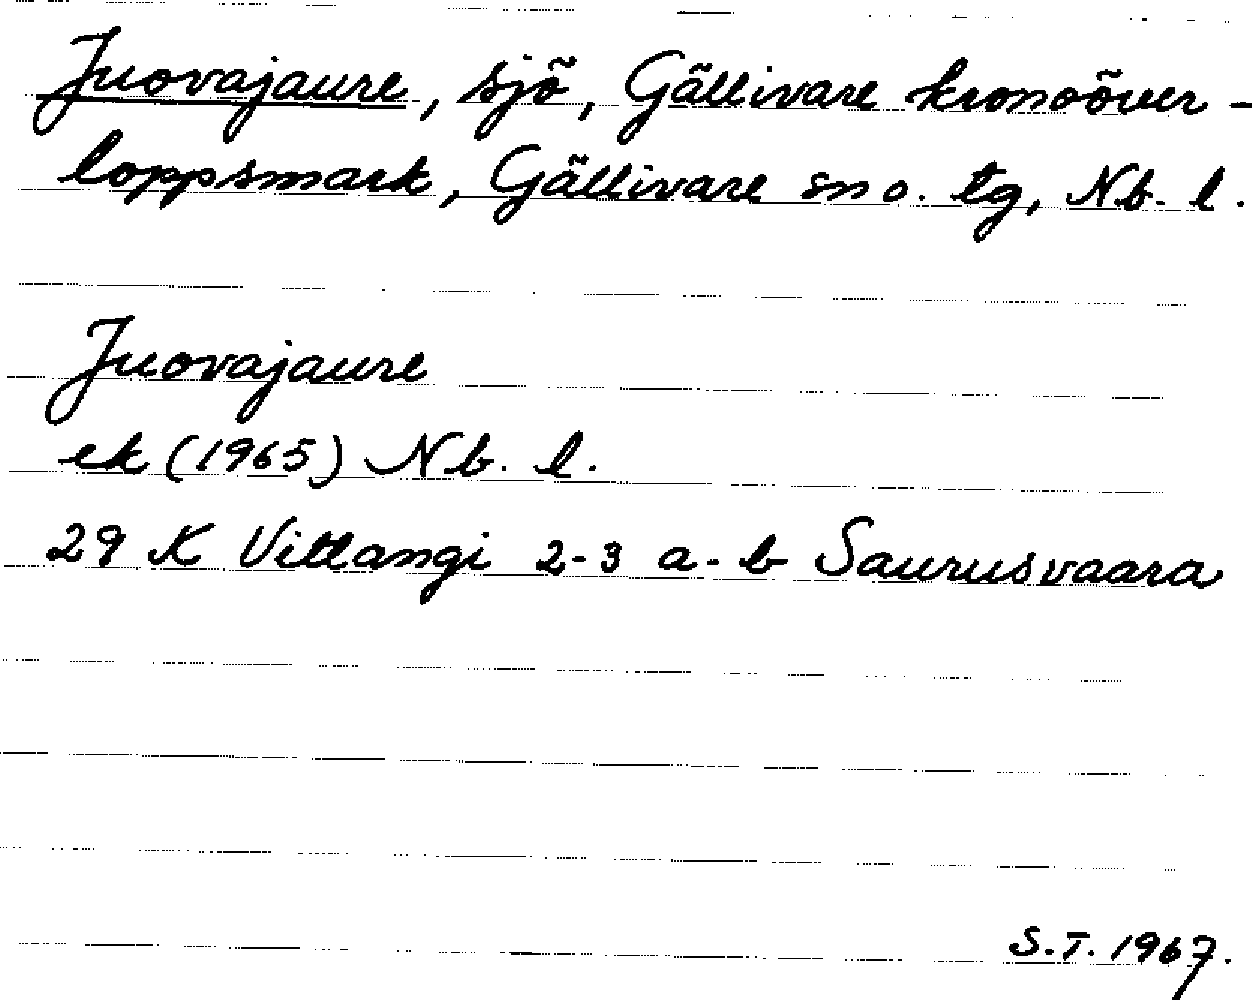 Juovajaure, sjö, Gällivare kronoöver-
loppsmark, Gällivare sn o. tg, Nb. l.
Juovajaure
ek (1965) Nb. l.
29 K Vittangi 2-3 a-b Saurusvaara
S.T. 1967.